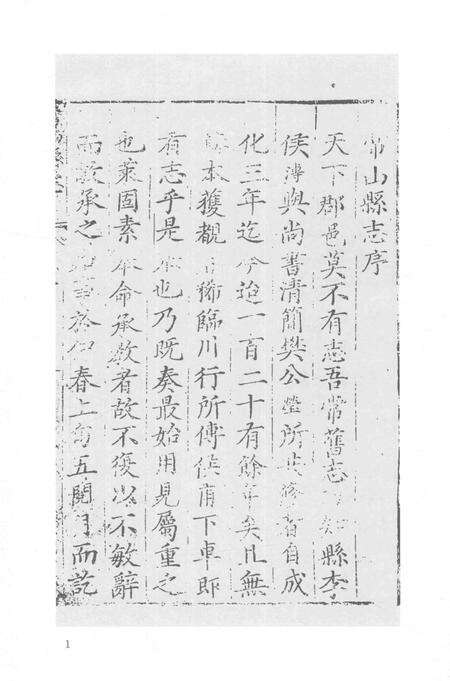 常山縣志序
天下郡邑莫不有志吾常舊志知縣李
侯溥與尚書清簡樊公瑩所共修者自成
化三年迄今迨一百二十有餘年矣凡無
本獲覩臨川行所傅侯甫下車即
有志乎是本也乃既奏最始用見屬重之
也萊固素承命承教者故不復以不敏辭
而敬承之春上旬五閱月而訖
1